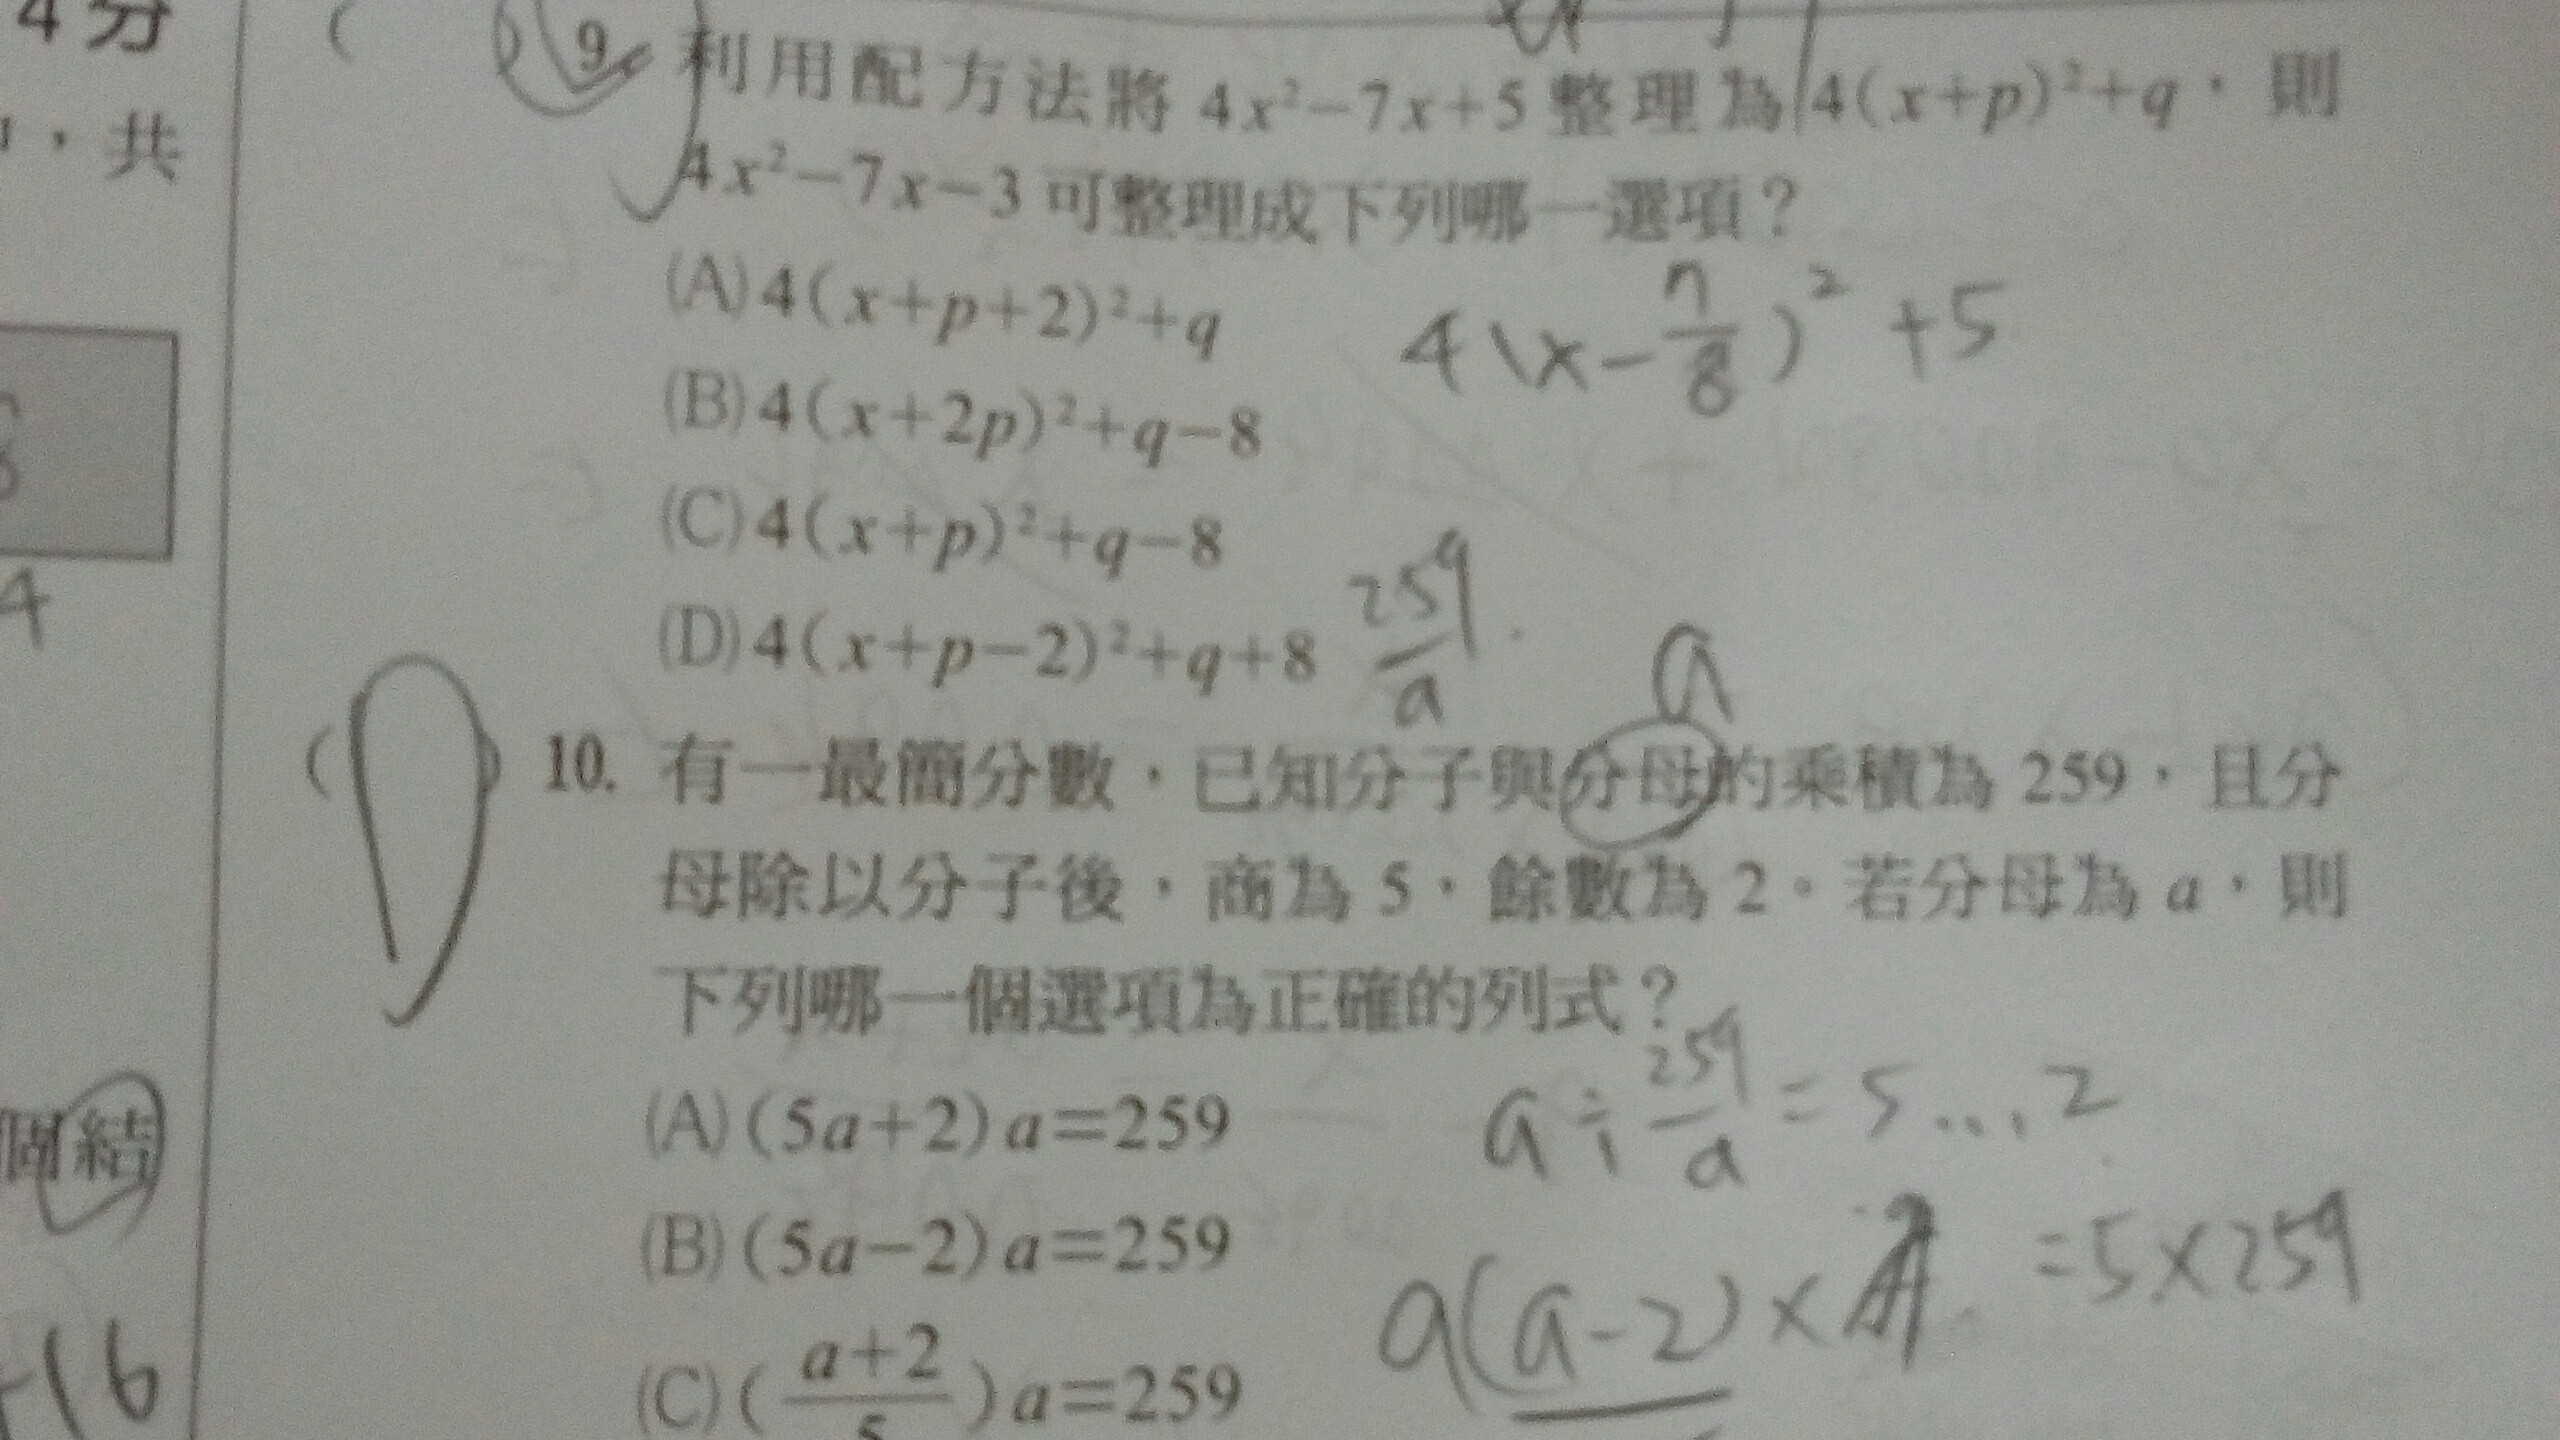 4分
，共
4
個結
16
( ) 9. 利用配方法將 4x²−7x+5 整理為 4(x+p)²+q，則
4x²−7x−3 可整理成下列哪一選項？
(A) 4(x+p+2)²+q
4(x−7/8)²+5
(B) 4(x+2p)²+q−8
(C) 4(x+p)²+q−8
(D) 4(x+p−2)²+q+8
259/a
a
( ) 10. 有一最簡分數，已知分子與分母的乘積為 259，且分
母除以分子後，商為 5，餘數為 2。若分母為 a，則
下列哪一個選項為正確的列式？
(A) (5a+2)a=259
a÷259/a=5...2
(B) (5a−2)a=259
a(a−2)× =5×259
(C) ((a+2)/5)a=259